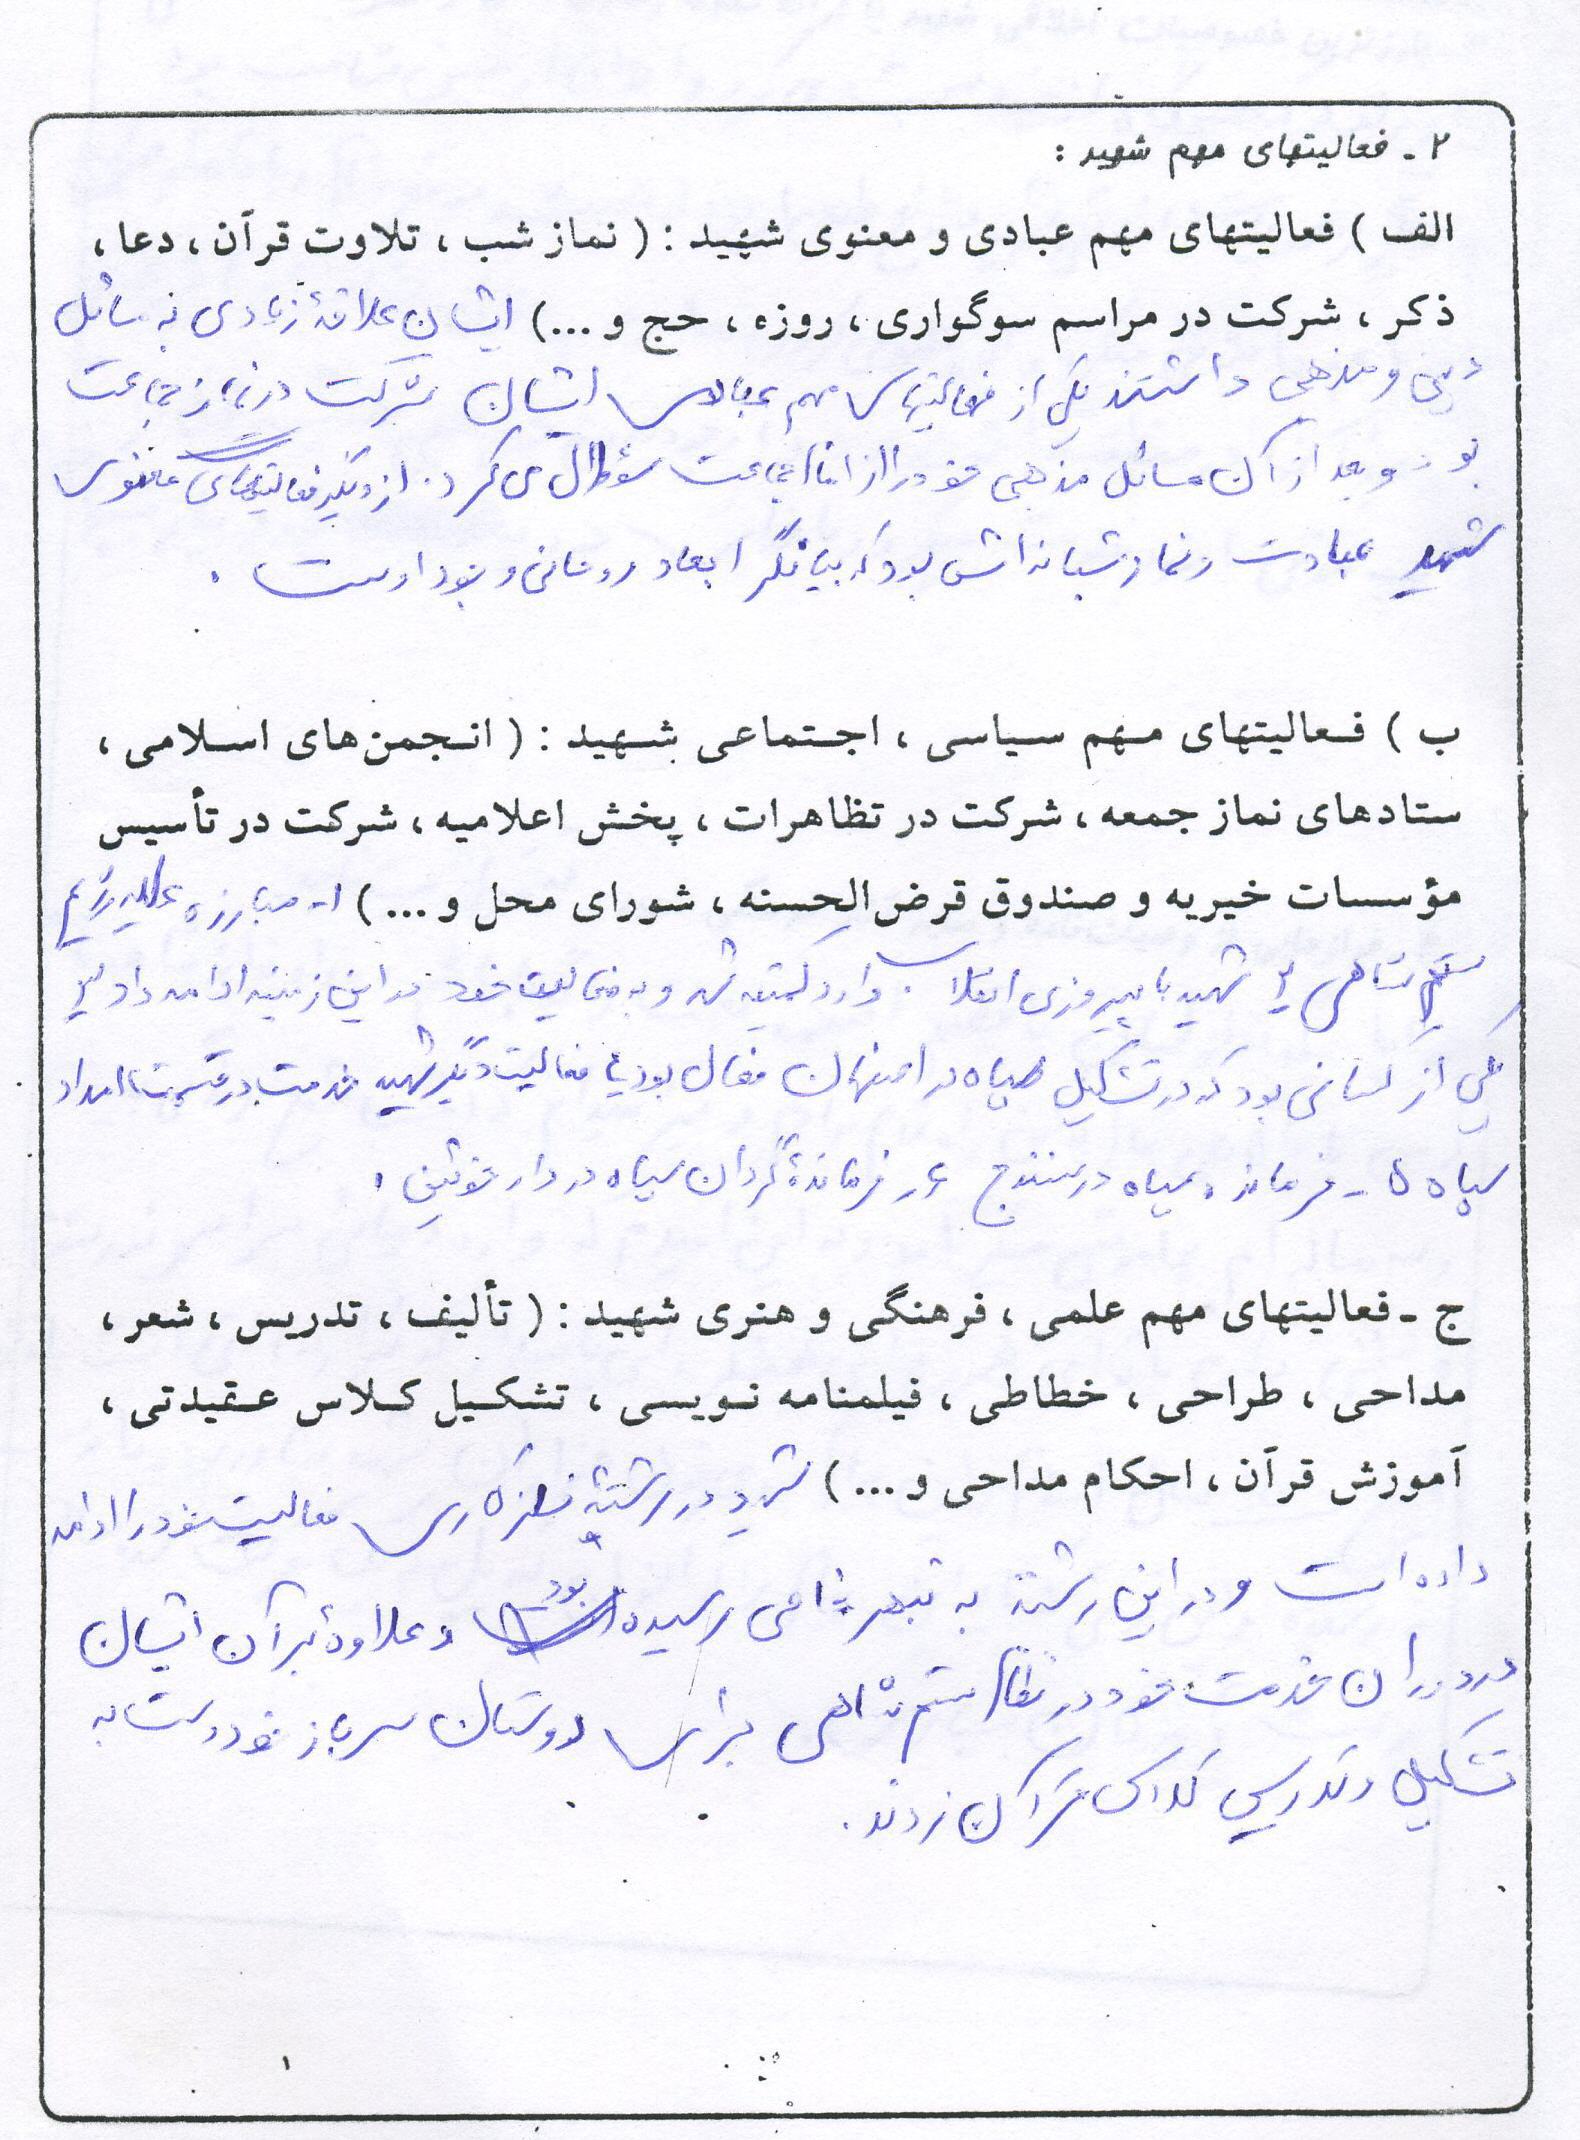 ۲ - فعالیتهای مهم شهید :
الف ) فعالیتهای مهم عبادی و معنوی شهید : ( نماز شب ، تلاوت قرآن ، دعا ،
ذکر ، شرکت در مراسم سوگواری ، روزه ، حج و ...) ایشان علاقهٔ زیادی به مسائل
دینی و مذهبی داشتند یکی از فعالیتهای مهم عبادی ایشان شرکت در نماز جماعت
بود و بعد از آن مسائل مذهبی خود را از امام جماعت سؤال می کرد . از دیگر فعالیتهای معنوی
شهید عبادت و نماز شبانه اش بود که بیانگر ابعاد روحانی وجود اوست .
ب ) فعالیتهای مهم سیاسی ، اجتماعی شهید : ( انجمن های اسلامی ،
ستادهای نماز جمعه ، شرکت در تظاهرات ، پخش اعلامیه ، شرکت در تأسیس
مؤسسات خیریه و صندوق قرض الحسنه ، شورای محل و ... ) ۱- مبارزه علیه رژیم
ستم شاهی ۲ شهید با پیروزی انقلاب وارد کمیته شد و به فعالیت خود در این زمینه ادامه داد ۳
یکی از کسانی بود که در تشکیل سپاه در اصفهان فعال بود ۴ فعالیت دیگر شهید خدمت در قسمت امداد
سپاه ۵ - فرمانده سپاه در سنندج ۶ - فرماندهٔ گردان سپاه در دارخوئین .
ج - فعالیتهای مهم علمی ، فرهنگی و هنری شهید : ( تألیف ، تدریس ، شعر ،
مداحی ، طراحی ، خطاطی ، فیلمنامه نویسی ، تشکیل کلاس عقیدتی ،
آموزش قرآن ، احکام مداحی و ... ) شهید در رشتهٔ فلزکاری فعالیت خود را ادامه
داده است و در این رشته به تبحر خاصی رسیده بود و علاوهٔ بر آن ایشان
در دوران خدمت خود در نظام ستم شاهی برای دوستان سرباز خود دست به
تشکیل و تدریس کلاس قرآن زدند .